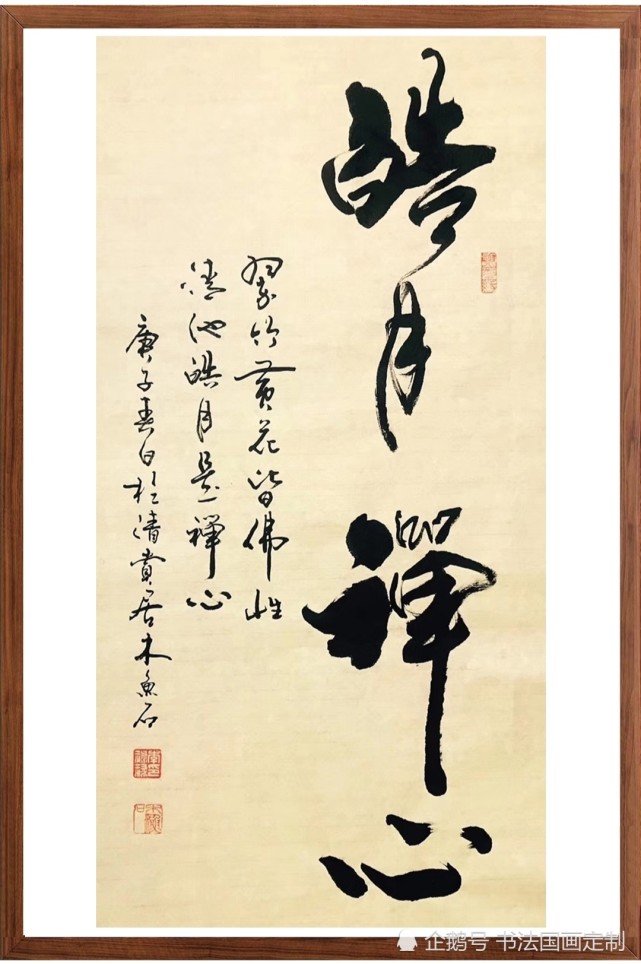 皓月禪心
翠竹黄花皆佛性
清池皓月是禪心
庚子春日於清賞居木魚石
企鹅号 书法国画定制